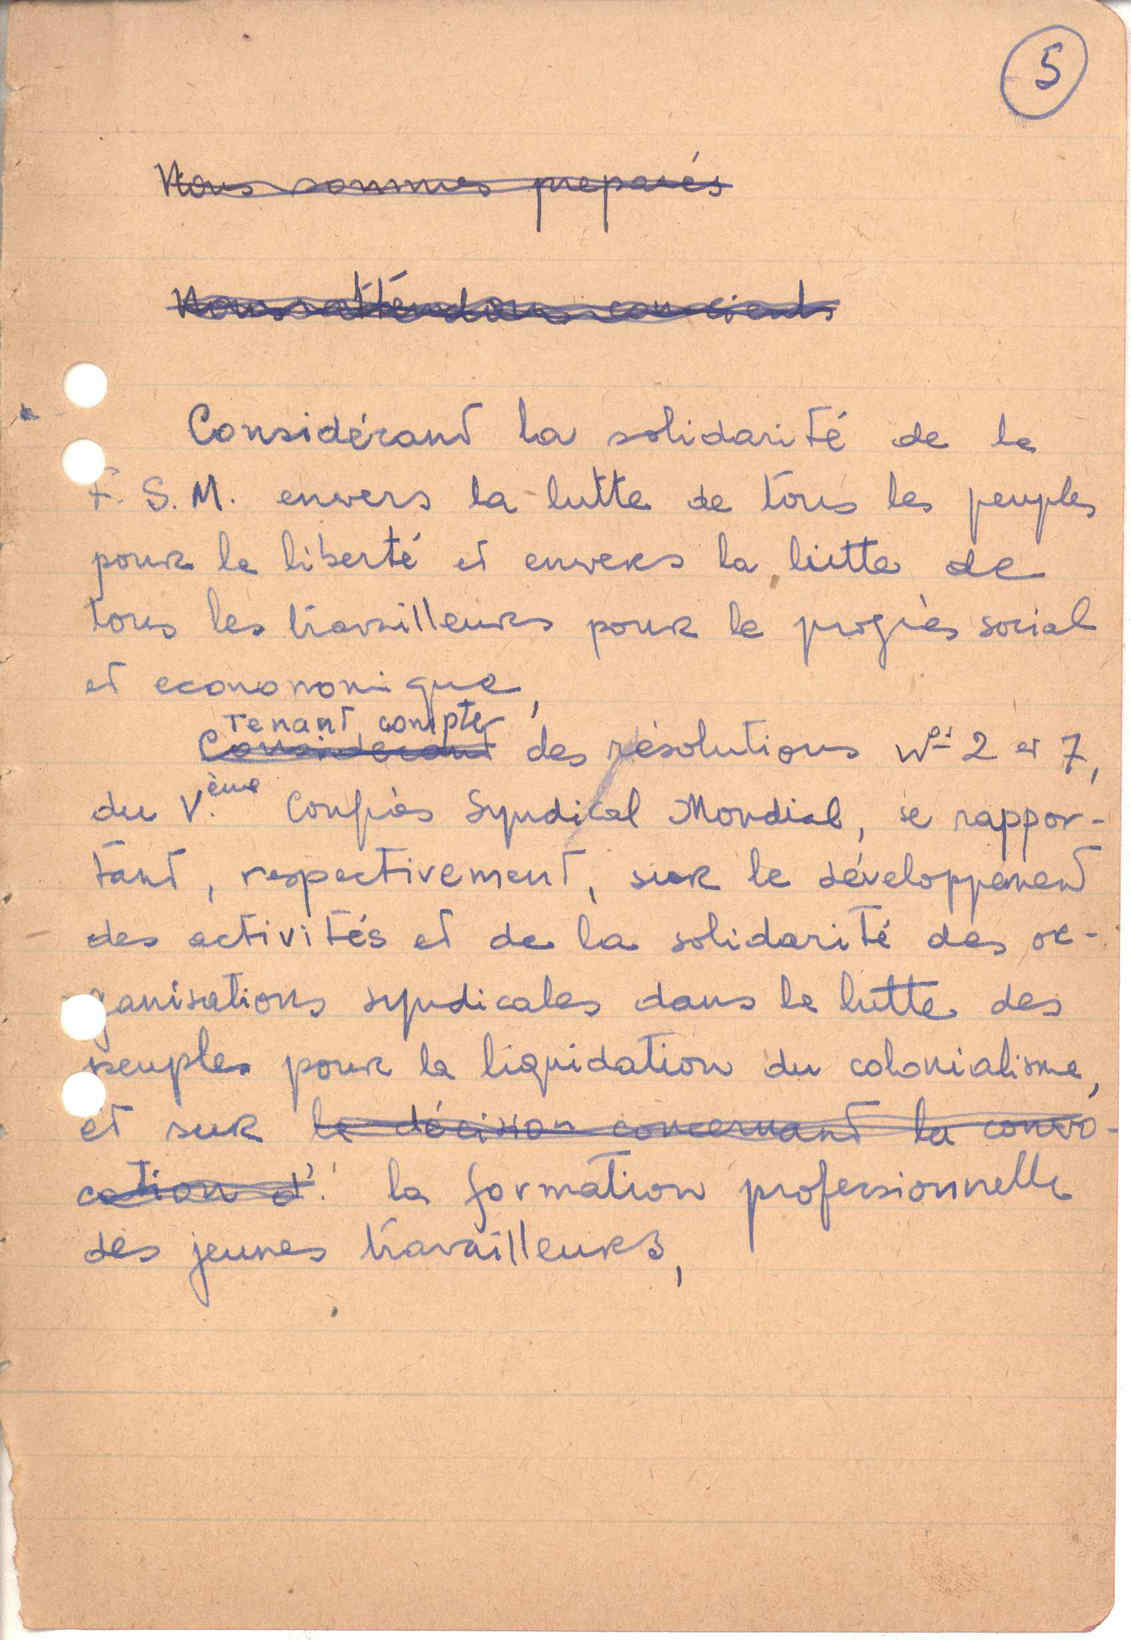 5
Nous sommes preparés
Nous atténdons conscients
Considérant la solidarité de la
F. S.M. envers la lutte de tous les peuples
pour la liberté et envers la lutte de
tous les travailleurs pour le progrès social
et econonomique,
Tenant compte
Considerant des résolutions Nos 2 et 7,
du V.ème Congrès Syndical Mondial, se rappor-
tant, respectivement, sur le développement
des activités et de la solidarité des or-
ganisations syndicales dans la lutte des
peuples pour la liquidation du colonialisme,
et sur la décision concernant la convo-
cation d' la formation professionnelle
des jeunes travailleurs,